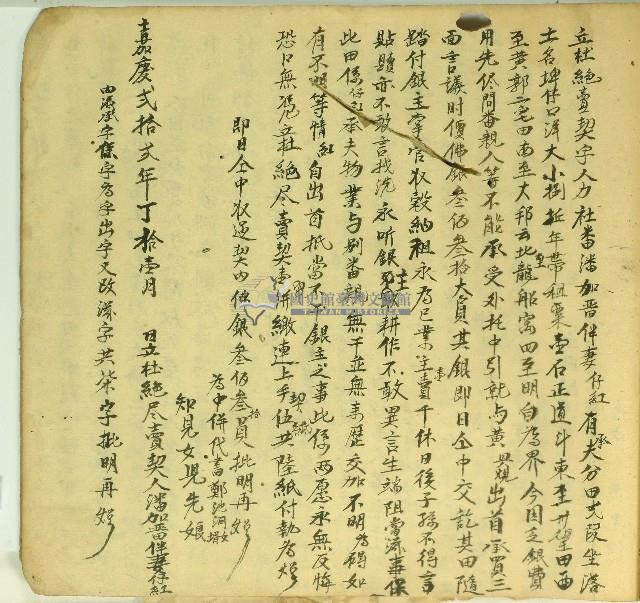 立杜絕賣契字人力社番潘加晋伴妻仔紅有承夫分田弍段坐落
土名埤仔口洋大小捌坵年帶租粟壹石正道斗東至卅望田西
至黄郭二宅田南至大邦云北至龍船窩四至明白為界今因乏銀費
用先侭問番親人等不能承受外托中引就与黄出首承買三
面言議时價佛銀叁佰叁拾大員其銀即日仝中交訖其田隨
踏付銀主掌官收穀納租永為己業一賣千休日後子孫不得言
貼贖亦不敢言找洗永听銀主耕作不敢異言生端阻當滋事保
此田係仔紅承夫物業与别番親無干並無来歷交加不明為碍如
有不明等情紅自出首抵當不干銀主之事此係两愿永無反悔
恐口無凴立杜絕尽賣契壹紙併繳連上手契伍共陸紙付执為炤
即日仝中收過契内佛銀叁佰叁拾員批明再炤
為中併代書鄭池
知見女児先娘
嘉慶弍拾弍年丁拾壹月 日立杜絕尽賣契人潘加晋伴妻仔紅
内添承字係字為字出字又改字共柒字批明再炤
國史館臺灣文獻館
TAIWAN HISTORICA